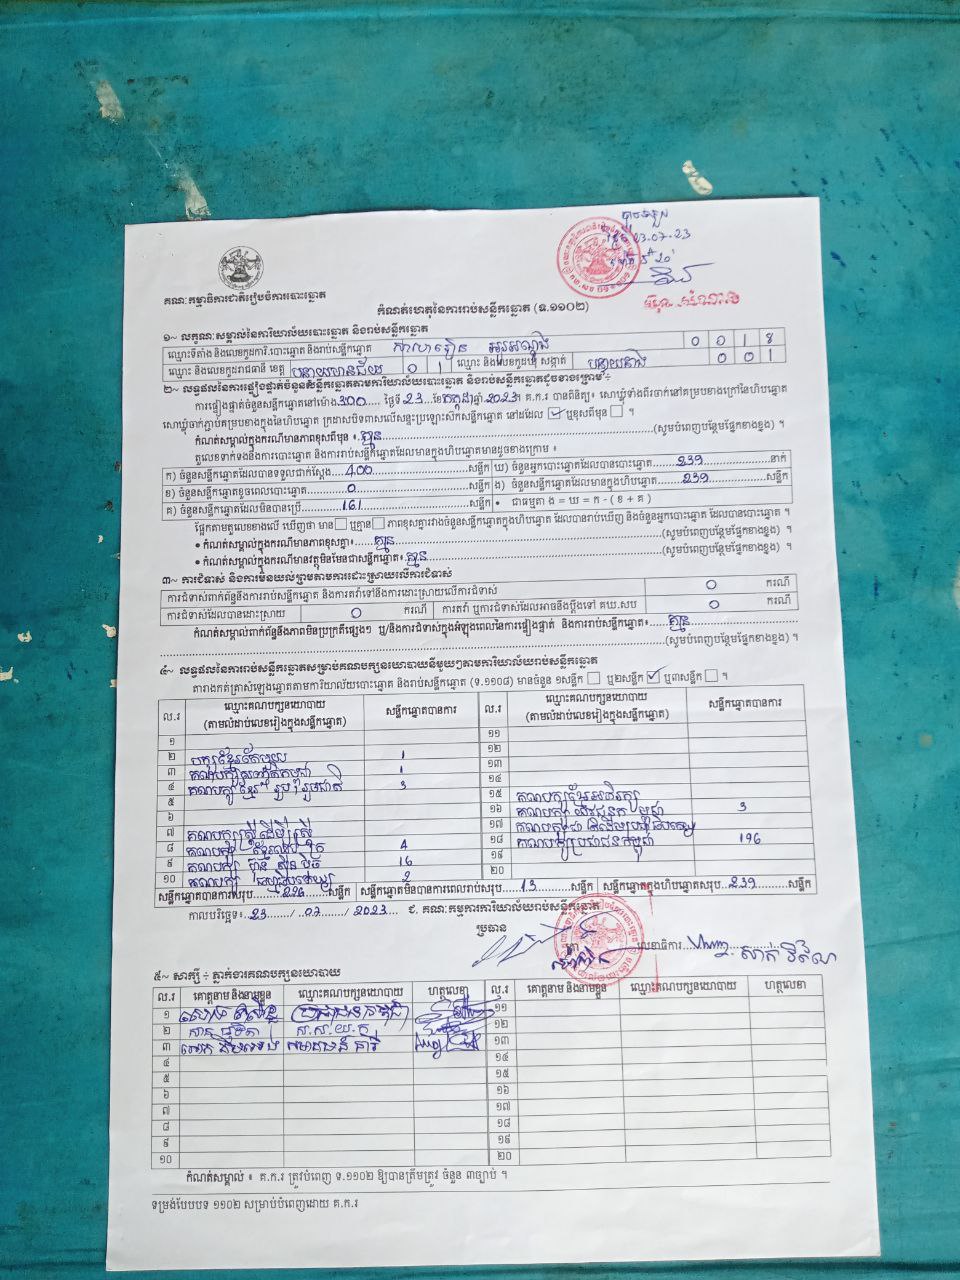 23-07-23
គណៈកម្មាធិការជាតិរៀបចំការបោះឆ្នោត
កំណត់ហេតុនៃការរាប់សន្លឹកឆ្នោត (ទ.១១០២)
១~ លក្ខណៈសម្គាល់នៃការិយាល័យបោះឆ្នោត និងរាប់សន្លឹកឆ្នោត
ឈ្មោះទីតាំង និងលេខកូដការិ.បោះឆ្នោត និងរាប់សន្លឹកឆ្នោត សាលារៀន 0 0 1 8
ឈ្មោះ និងលេខកូដរាជធានី ខេត្ត បន្ទាយមានជ័យ 0 1 ឈ្មោះ និងលេខកូដឃុំ សង្កាត់ បន្ទាយនាង 0 0 1
២~ លទ្ធផលនៃការផ្ទៀងផ្ទាត់ចំនួនសន្លឹកឆ្នោតតាមការិយាល័យបោះឆ្នោត និងរាប់សន្លឹកឆ្នោតដូចខាងក្រោម ÷
ការផ្ទៀងផ្ទាត់ចំនួនសន្លឹកឆ្នោតនៅម៉ោង 3:00 ថ្ងៃទី 23 ខែកក្កដា ឆ្នាំ 2023 គ.ក.រ បានពិនិត្យ៖ សោឃ្លុំទាំងពីរចាក់នៅគម្របខាងក្រៅនៃហិបឆ្នោត
សោឃ្លុំចាក់ភ្ជាប់គម្របខាងក្នុងនៃហិបឆ្នោត ក្រដាសបិទពាសលើសន្ទះប្រឡោះស៊កសន្លឹកឆ្នោត នៅដដែល ✓ ឬខុសពីមុន ។
កំណត់សម្គាល់ក្នុងករណីមានភាពខុសពីមុន ៖ គ្មាន (សូមបំពេញបន្ថែមផ្នែកខាងខ្នង) ។
តួលេខទាក់ទងនឹងការបោះឆ្នោត និងការរាប់សន្លឹកឆ្នោតដែលមានក្នុងហិបឆ្នោតមានដូចខាងក្រោម ៖
ក) ចំនួនសន្លឹកឆ្នោតដែលបានទទួលជាក់ស្ដែង 400 សន្លឹក ឃ) ចំនួនអ្នកបោះឆ្នោតដែលបានបោះឆ្នោត 239 នាក់
ខ) ចំនួនសន្លឹកឆ្នោតខូចពេលបោះឆ្នោត 0 សន្លឹក ង) ចំនួនសន្លឹកឆ្នោតដែលមានក្នុងហិបឆ្នោត 239 សន្លឹក
គ) ចំនួនសន្លឹកឆ្នោតដែលមិនបានប្រើ 161 សន្លឹក • ជាធម្មតា ង = ឃ = ក - ( ខ + គ )
ផ្អែកតាមតួលេខខាងលើ ឃើញថា មាន ឬគ្មាន ភាពខុសគ្នារវាងចំនួនសន្លឹកឆ្នោតក្នុងហិបឆ្នោត ដែលបានរាប់ឃើញ និងចំនួនអ្នកបោះឆ្នោត ដែលបានបោះឆ្នោត ។
• កំណត់សម្គាល់ក្នុងករណីមានភាពខុសគ្នា៖ គ្មាន (សូមបំពេញបន្ថែមផ្នែកខាងខ្នង) ។
• កំណត់សម្គាល់ក្នុងករណីមានវត្ថុមិនមែនជាសន្លឹកឆ្នោត៖ គ្មាន (សូមបំពេញបន្ថែមផ្នែកខាងខ្នង) ។
៣~ ការជំទាស់ និងការមិនយល់ព្រមតាមការដោះស្រាយលើការជំទាស់
ការជំទាស់ពាក់ព័ន្ធនឹងការរាប់សន្លឹកឆ្នោត និងការតវ៉ាទៅនឹងការដោះស្រាយលើការជំទាស់ 0 ករណី
ការជំទាស់ដែលបានដោះស្រាយ 0 ករណី ការតវ៉ា ឬការជំទាស់ដែលអាចនឹងប្ដឹងទៅ គឃ.សប 0 ករណី
កំណត់សម្គាល់ពាក់ព័ន្ធនឹងភាពមិនប្រក្រតីផ្សេងៗ ឬ/និងការជំទាស់ក្នុងអំឡុងពេលនៃការផ្ទៀងផ្ទាត់ និងការរាប់សន្លឹកឆ្នោត៖ គ្មាន
(សូមបំពេញបន្ថែមផ្នែកខាងខ្នង) ។
៤~ លទ្ធផលនៃការរាប់សន្លឹកឆ្នោតសម្រាប់គណបក្សនយោបាយនីមួយៗតាមការិយាល័យរាប់សន្លឹកឆ្នោត
តារាងកត់ត្រាសំឡេងឆ្នោតតាមការិយាល័យបោះឆ្នោត និងរាប់សន្លឹកឆ្នោត (ទ.១១០៨) មានចំនួន ១សន្លឹក ឬ២សន្លឹក ✓ ឬ៣សន្លឹក ។
ល.រ ឈ្មោះគណបក្សនយោបាយ (តាមលំដាប់លេខរៀងក្នុងសន្លឹកឆ្នោត) សន្លឹកឆ្នោតបានការ ល.រ ឈ្មោះគណបក្សនយោបាយ (តាមលំដាប់លេខរៀងក្នុងសន្លឹកឆ្នោត) សន្លឹកឆ្នោតបានការ
១ ១១
២ បក្សខ្មែរតែមួយ 1 ១២
៣ 1 ១៣
៤ 3 ១៤
៥ ១៥ គណបក្សខ្មែរអភិរក្ស
៦ ១៦ 3
៧ គណបក្សស្ត្រីដើម្បីស្ត្រី ១៧
៨ គណបក្ស 4 ១៨ គណបក្សប្រជាជនកម្ពុជា 196
៩ គណបក្ស ហ៊្វុនស៊ិនប៉ិច 16 ១៩
១០ គណបក្ស 2 ២០
សន្លឹកឆ្នោតបានការសរុប 226 សន្លឹក សន្លឹកឆ្នោតមិនបានការពេលរាប់សរុប 13 សន្លឹក សន្លឹកឆ្នោតក្នុងហិបឆ្នោតសរុប 239 សន្លឹក
កាលបរិច្ឆេទ៖ 23 / 07 / 2023 ជ. គណៈកម្មការការិយាល័យរាប់សន្លឹកឆ្នោត
ប្រធាន
លេខាធិការ
៥~ សាក្សី ÷ ភ្នាក់ងារគណបក្សនយោបាយ
ល.រ គោត្តនាម និងនាមខ្លួន ឈ្មោះគណបក្សនយោបាយ ហត្ថលេខា ល.រ គោត្តនាម និងនាមខ្លួន ឈ្មោះគណបក្សនយោបាយ ហត្ថលេខា
១ ប្រជាជនកម្ពុជា ១១
២ ស.ស.យ.ក ១២
៣ ១៣
៤ ១៤
៥ ១៥
៦ ១៦
៧ ១៧
៨ ១៨
៩ ១៩
១០ ២០
កំណត់សម្គាល់ ៖ គ.ក.រ ត្រូវបំពេញ ទ.១១០២ ឱ្យបានត្រឹមត្រូវ ចំនួន ៣ច្បាប់ ។
ទម្រង់បែបបទ ១១០២ សម្រាប់បំពេញដោយ គ.ក.រ